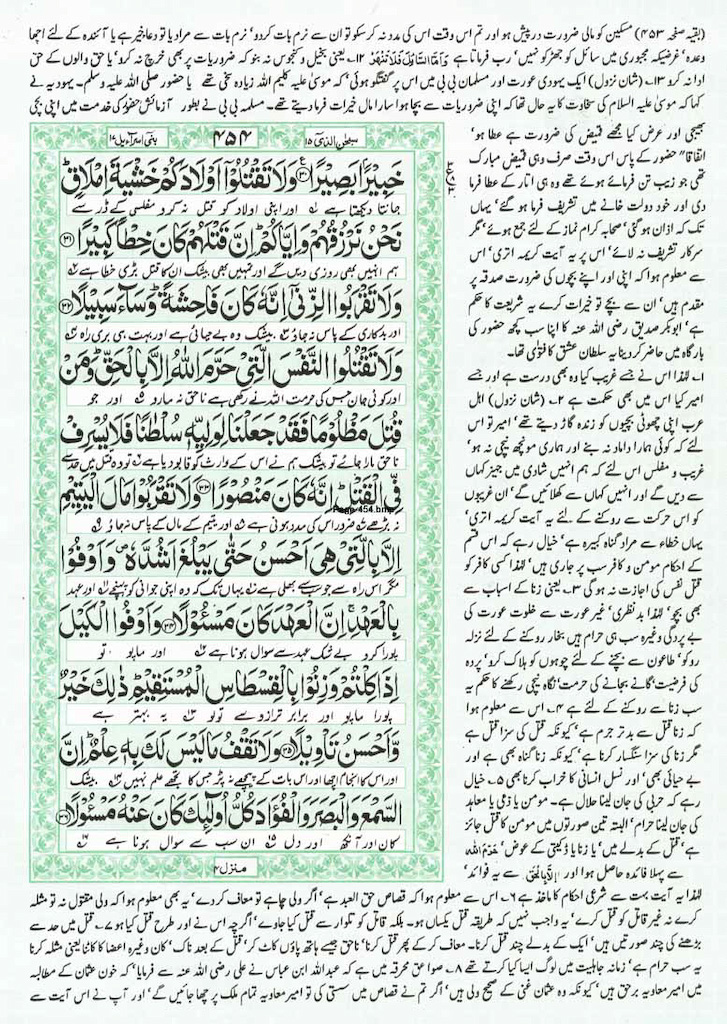 (بقیہ صفحہ ۴۵۳) مسکین کو مالی ضرورت درپیش ہو اور تم اس وقت اس کی مدد نہ کر سکو تو ان سے نرم بات کردو' نرم بات سے مراد یا تو دعا خیر ہے یا آئندہ کے لئے اچھا
وعدہ' غرضیکہ مجبوری میں سائل کو جھڑکو نہیں' رب فرماتا ہے وَاَمَّا السَّآئِلَ فَلَا تَنْهَرْ ۱۲۔ یعنی بخیل و کنجوس نہ بنو کہ ضروریات پر بھی خرچ نہ کرو' یا حق والوں کے حق
ادا نہ کرو ۱۳۔ (شان نزول) ایک یہودی عورت اور مسلمان بی بی میں اس پر گفتگو ہوئی' کہ موسیٰ علیہ کلیم اللہ زیادہ سخی تھے یا حضور صلی اللہ علیہ وسلم۔ یہودیہ نے
کہا کہ موسیٰ علیہ السلام کی سخاوت کا یہ حال تھا کہ اپنی ضروریات سے بچا ہوا سارا مال خیرات فرما دیتے تھے۔ مسلمہ بی بی نے بطور آزمائش حضور کی خدمت میں اپنی بچی
بھیجی اور عرض کیا مجھے قمیض کی ضرورت ہے عطا ہو'
اتفاقا" حضور کے پاس اس وقت صرف وہی قمیض مبارک
تھی جو زیب تن فرمائے ہوئے تھے وہ ہی اتار کے عطا فرما
دی اور خود دولت خانے میں تشریف فرما ہو گئے' یہاں
تک کہ اذان ہو گئی' صحابہ کرام نماز کے لئے جمع ہوئے' مگر
سرکار تشریف نہ لائے' اس پر یہ آیت کریمہ اتری' اس
سے معلوم ہوا کہ اپنی اور اپنے بچوں کی ضرورت صدقہ پر
مقدم ہیں' ان سے بچے تو خیرات کرے یہ شریعت کا حکم
ہے' ابوبکر صدیق رضی اللہ عنہ کا اپنا سب کچھ حضور کی
بارگاہ میں حاضر کر دینا یہ سلطان عشق کا فتویٰ تھا۔
۱۔ لہٰذا اس نے جسے غریب کیا وہ بھی درست ہے اور جسے
امیر کیا اس میں بھی حکمت ہے ۲۔ (شان نزول) اہل
عرب اپنی چھوٹی بچیوں کو زندہ گاڑ دیتے تھے' امیر تو اس
لئے کہ کوئی ہمارا داماد نہ بنے اور ہماری مونچھ نیچی نہ ہو'
غریب و مفلس اس لئے کہ ہم انہیں شادی میں جہیز کہاں
سے دیں گے اور انہیں کہاں سے کھلائیں گے' ان غریبوں
کو اس حرکت سے روکنے کے لئے یہ آیت کریمہ اتری'
یہاں خطاء سے مراد گناہ کبیرہ ہے' خیال رہے کہ اس قسم
کے احکام مومن و کافر سب پر جاری ہیں' لہٰذا کسی کافر کو
قتل نفس کی اجازت نہ ہو گی ۳۔ یعنی زنا کے اسباب سے
بھی بچو' لہٰذا بد نظری' غیر عورت سے خلوت عورت کی
بے پردگی وغیرہ سب ہی حرام ہیں بخار روکنے کے لئے نزلہ
روکو' طاعون سے بچنے کے لئے چوہوں کو ہلاک کرو' پردہ
کی فرضیت' گانے بجانے کی حرمت' نگاہ نیچی رکھنے کا حکم یہ
سب زنا سے روکنے کے لئے ہے ۴۔ اس سے معلوم ہوا
کہ زنا قتل سے بدتر جرم ہے' کیونکہ قتل کی سزا قتل ہے
مگر زنا کی سزا سنگسار کرنا ہے' کیونکہ زنا گناہ بھی ہے اور
بے حیائی بھی' اور نسل انسانی کا خراب کرنا بھی ۵۔ خیال
رہے کہ حربی کی جان لینا حلال ہے۔ مومن یا ذمی یا معاہد
کی جان لینا حرام' البتہ تین صورتوں میں مومن کا قتل جائز
ہے' قتل کے بدلے میں' یا زنا یا ڈکیتی کے عوض' حَرَّمَ اللهُ
سے پہلا فائدہ حاصل ہوا اور اِلَّا بِالْحَقِّ سے یہ فوائد'
۴۵۴
سبحٰن الذی ۱۵
بنی اسرآءیل ۱۷
خَبِيْرًۢا بَصِيْرًا ۞ وَلَا تَقْتُلُوْۤا اَوْلَادَكُمْ خَشْيَةَ اِمْلَاقٍ
جانتا دیکھتا ہے اور اپنی اولاد کو قتل نہ کرو مفلسی کے ڈر سے
نَحْنُ نَرْزُقُهُمْ وَاِيَّاكُمْ اِنَّ قَتْلَهُمْ كَانَ خِطْاً كَبِيْرًا ۞
ہم انہیں بھی روزی دیں گے اور تمہیں بھی بیشک ان کا قتل بڑی خطا ہے
وَلَا تَقْرَبُوا الزِّنٰۤى اِنَّهٗ كَانَ فَاحِشَةً وَسَآءَ سَبِيْلًا ۞
اور بدکاری کے پاس نہ جاؤ بیشک وہ بے حیائی ہے اور بہت ہی بری راہ
وَلَا تَقْتُلُوا النَّفْسَ الَّتِيْ حَرَّمَ اللهُ اِلَّا بِالْحَقِّ وَمَنْ
اور کوئی جان جس کی حرمت اللہ نے رکھی ہے ناحق نہ مارو اور جو
قُتِلَ مَظْلُوْمًا فَقَدْ جَعَلْنَا لِوَلِيِّهٖ سُلْطٰنًا فَلَا يُسْرِفْ
ناحق مارا جائے تو بیشک ہم نے اس کے وارث کو قابو دیا ہے تو وہ قتل میں حد سے
فِّى الْقَتْلِ اِنَّهٗ كَانَ مَنْصُوْرًا ۞ وَلَا تَقْرَبُوْا مَالَ الْيَتِيْمِ
Page 454.bmp
نہ بڑھے ضرور اس کی مدد ہونی ہے اور یتیم کے مال کے پاس نہ جاؤ
اِلَّا بِالَّتِيْ هِىَ اَحْسَنُ حَتّٰى يَبْلُغَ اَشُدَّهٗ وَاَوْفُوْا
مگر اس راہ سے جو سب سے بھلی ہے یہاں تک کہ وہ اپنی جوانی کو پہنچے اور عہد
بِالْعَهْدِ اِنَّ الْعَهْدَ كَانَ مَسْـُٔوْلًا ۞ وَاَوْفُوا الْكَيْلَ
پورا کرو بے شک عہد سے سوال ہونا ہے اور ماپو تو
اِذَا كِلْتُمْ وَزِنُوْا بِالْقِسْطَاسِ الْمُسْتَقِيْمِ ذٰلِكَ خَيْرٌ
پورا ماپو اور برابر ترازو سے تولو یہ بہتر ہے
وَّاَحْسَنُ تَاْوِيْلًا ۞ وَلَا تَقْفُ مَا لَيْسَ لَكَ بِهٖ عِلْمٌ اِنَّ
اور اس کا انجام اچھا اور اس بات کے پیچھے نہ پڑ جس کا تجھے علم نہیں بیشک
السَّمْعَ وَالْبَصَرَ وَالْفُؤَادَ كُلُّ اُولٰٓئِكَ كَانَ عَنْهُ مَسْـُٔوْلًا ۞
کان اور آنکھ اور دل ان سب سے سوال ہونا ہے
منزل ۴
لہٰذا یہ آیت بہت سے شرعی احکام کا ماخذ ہے ۶۔ اس سے معلوم ہوا کہ قصاص حق العبد ہے' اگر ولی چاہے تو معاف کر دے' یہ بھی معلوم ہوا کہ ولی مقتول نہ تو مثلہ
کرے نہ غیر قاتل کو قتل کرے' یہ واجب نہیں کہ طریقہ قتل یکساں ہو۔ بلکہ قاتل کو تلوار سے قتل کیا جاوے' اگرچہ اس نے اور طرح قتل کیا ہو ۷۔ قتل میں حد سے
بڑھنے کی چند صورتیں ہیں' ایک کے بدلے چند قتل کرنا۔ معاف کر کے پھر قتل کرنا' ناحق جیسے ہاتھ پاؤں کاٹ کر' قتل کے بعد ناک' کان وغیرہ اعضا کا کاٹنا یعنی مثلہ کرنا
یہ سب حرام ہے' زمانہ جاہلیت میں لوگ ایسا کیا کرتے تھے ۸۔ صواعق محرقہ میں ہے کہ عبداللہ ابن عباس نے علی رضی اللہ عنہ سے فرمایا' کہ خون عثمان کے مطالبہ
میں امیر معاویہ برحق ہیں' کیونکہ وہ عثمان غنی کے صحیح ولی ہیں' اگر تم نے قصاص میں سستی کی تو امیر معاویہ تمام ملک پر چھا جائیں گے' اور آپ نے اس آیت سے